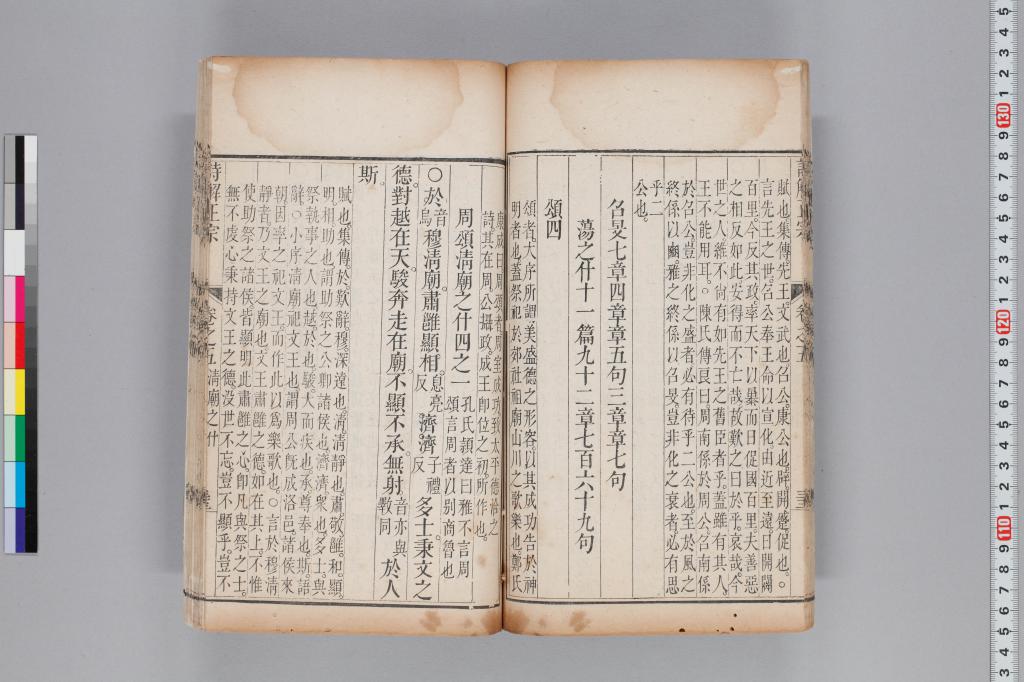 賦也集傳先王文武也召公康公也辟開蹙促也○
言先王之世召公奉王命以宣化由近至遠日開闢
百里今反其政率天下以暴而日促國百里夫善惡
之相反如此安得而不亡哉故歎之曰於乎哀哉今
世之人維不尚有如先王之舊臣者乎蓋雖有其人
王不能用耳○陳氏傅良曰周南係於周公召南係
於召公豈非化之盛者必有待乎二公也至於風之
終係以豳雅之終係以召旻豈非化之衰者必有思
乎二
公也
召旻七章四章章五句三章章七句
蕩之什十一篇九十二章七百六十九句
頌四
頌者大序所謂美盛德之形容以其成功告於神
明者也蓋祭祀於郊社祖廟山川之歌樂也鄭氏
康成曰周頌者周室成功致太平德洽之
詩其在周公攝政成王卽位之初所作也
周頌淸廟之什四之一
孔氏頴達曰雅不言周
頌言周者以别商魯也
○於音烏穆淸廟肅雝顯相息亮反濟濟子禮反多士秉文之
德對越在天駿奔走在廟不顯不承無射音亦與斁同於人
斯
賦也集傳於歎辭穆深遠也淸淸靜也肅敬雝和顯
明相助也謂助祭之公卿諸侯也濟濟衆也多士與
祭執事之人也越於也駿大而疾也承尊奉也斯語
辭○小序淸廟祀文王也謂周公旣成洛邑諸侯來
朝因率之祀文王而作此以爲樂歌也○言於穆淸
靜者乃文王之廟也文王肅雝之德如在其上不惟
使助祭之諸侯皆顯明此肅雝之心卽凡與祭之士
無不虔心秉持文王之德没世不忘豈不顯乎豈不
詩解正宗
卷之五 淸廟之什